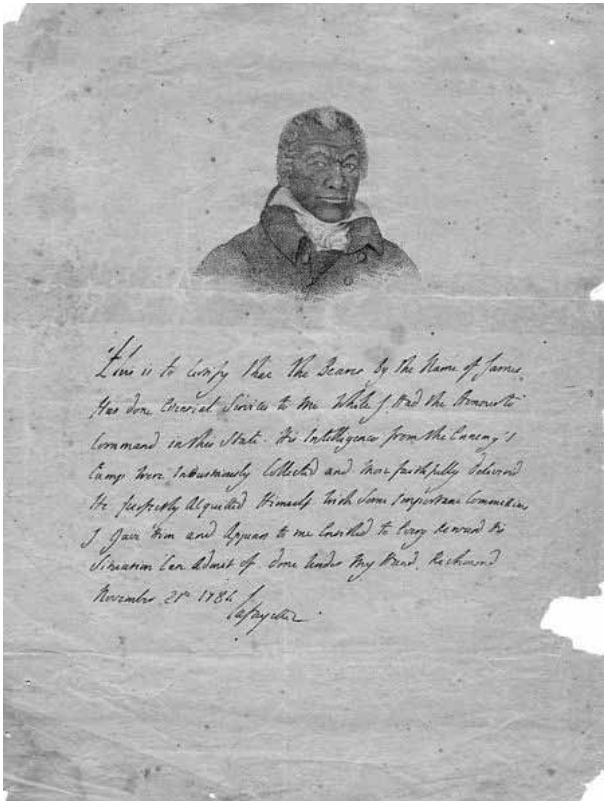 This is to Certify that the Bearer by the Name of James
Has done Essential Services to me While I Had the Honour to
Command in this State. His Intelligences from the Enemy's
Camp were Industriously Collected and More faithfully deliver'd
He perfectly Acquitted Himself with Some Important Commissions
I Gave Him and Appears to me Entitled to Every Reward his
Situation Can Admit of. Done Under My Hand, Richmond
November 21st 1784
Lafayette